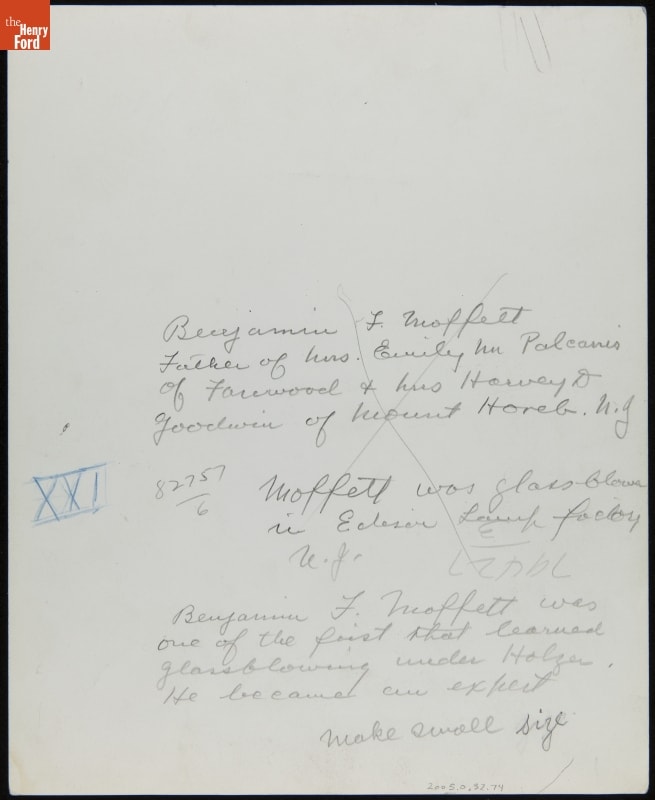 the
Henry
Ford
Benjamin F. Moffett
Father of Mrs. Emily M
of Fanwood & Mrs Harvey D
Goodwin of Mount Horeb. N.J
XXI
82757
6
Moffett was glassblower
in Edison Lamp factory
N.J.
Benjamin F. Moffett was
one of the first that learned
glassblowing under Holzer.
He became an expert
Make small size
2005.0.32.74